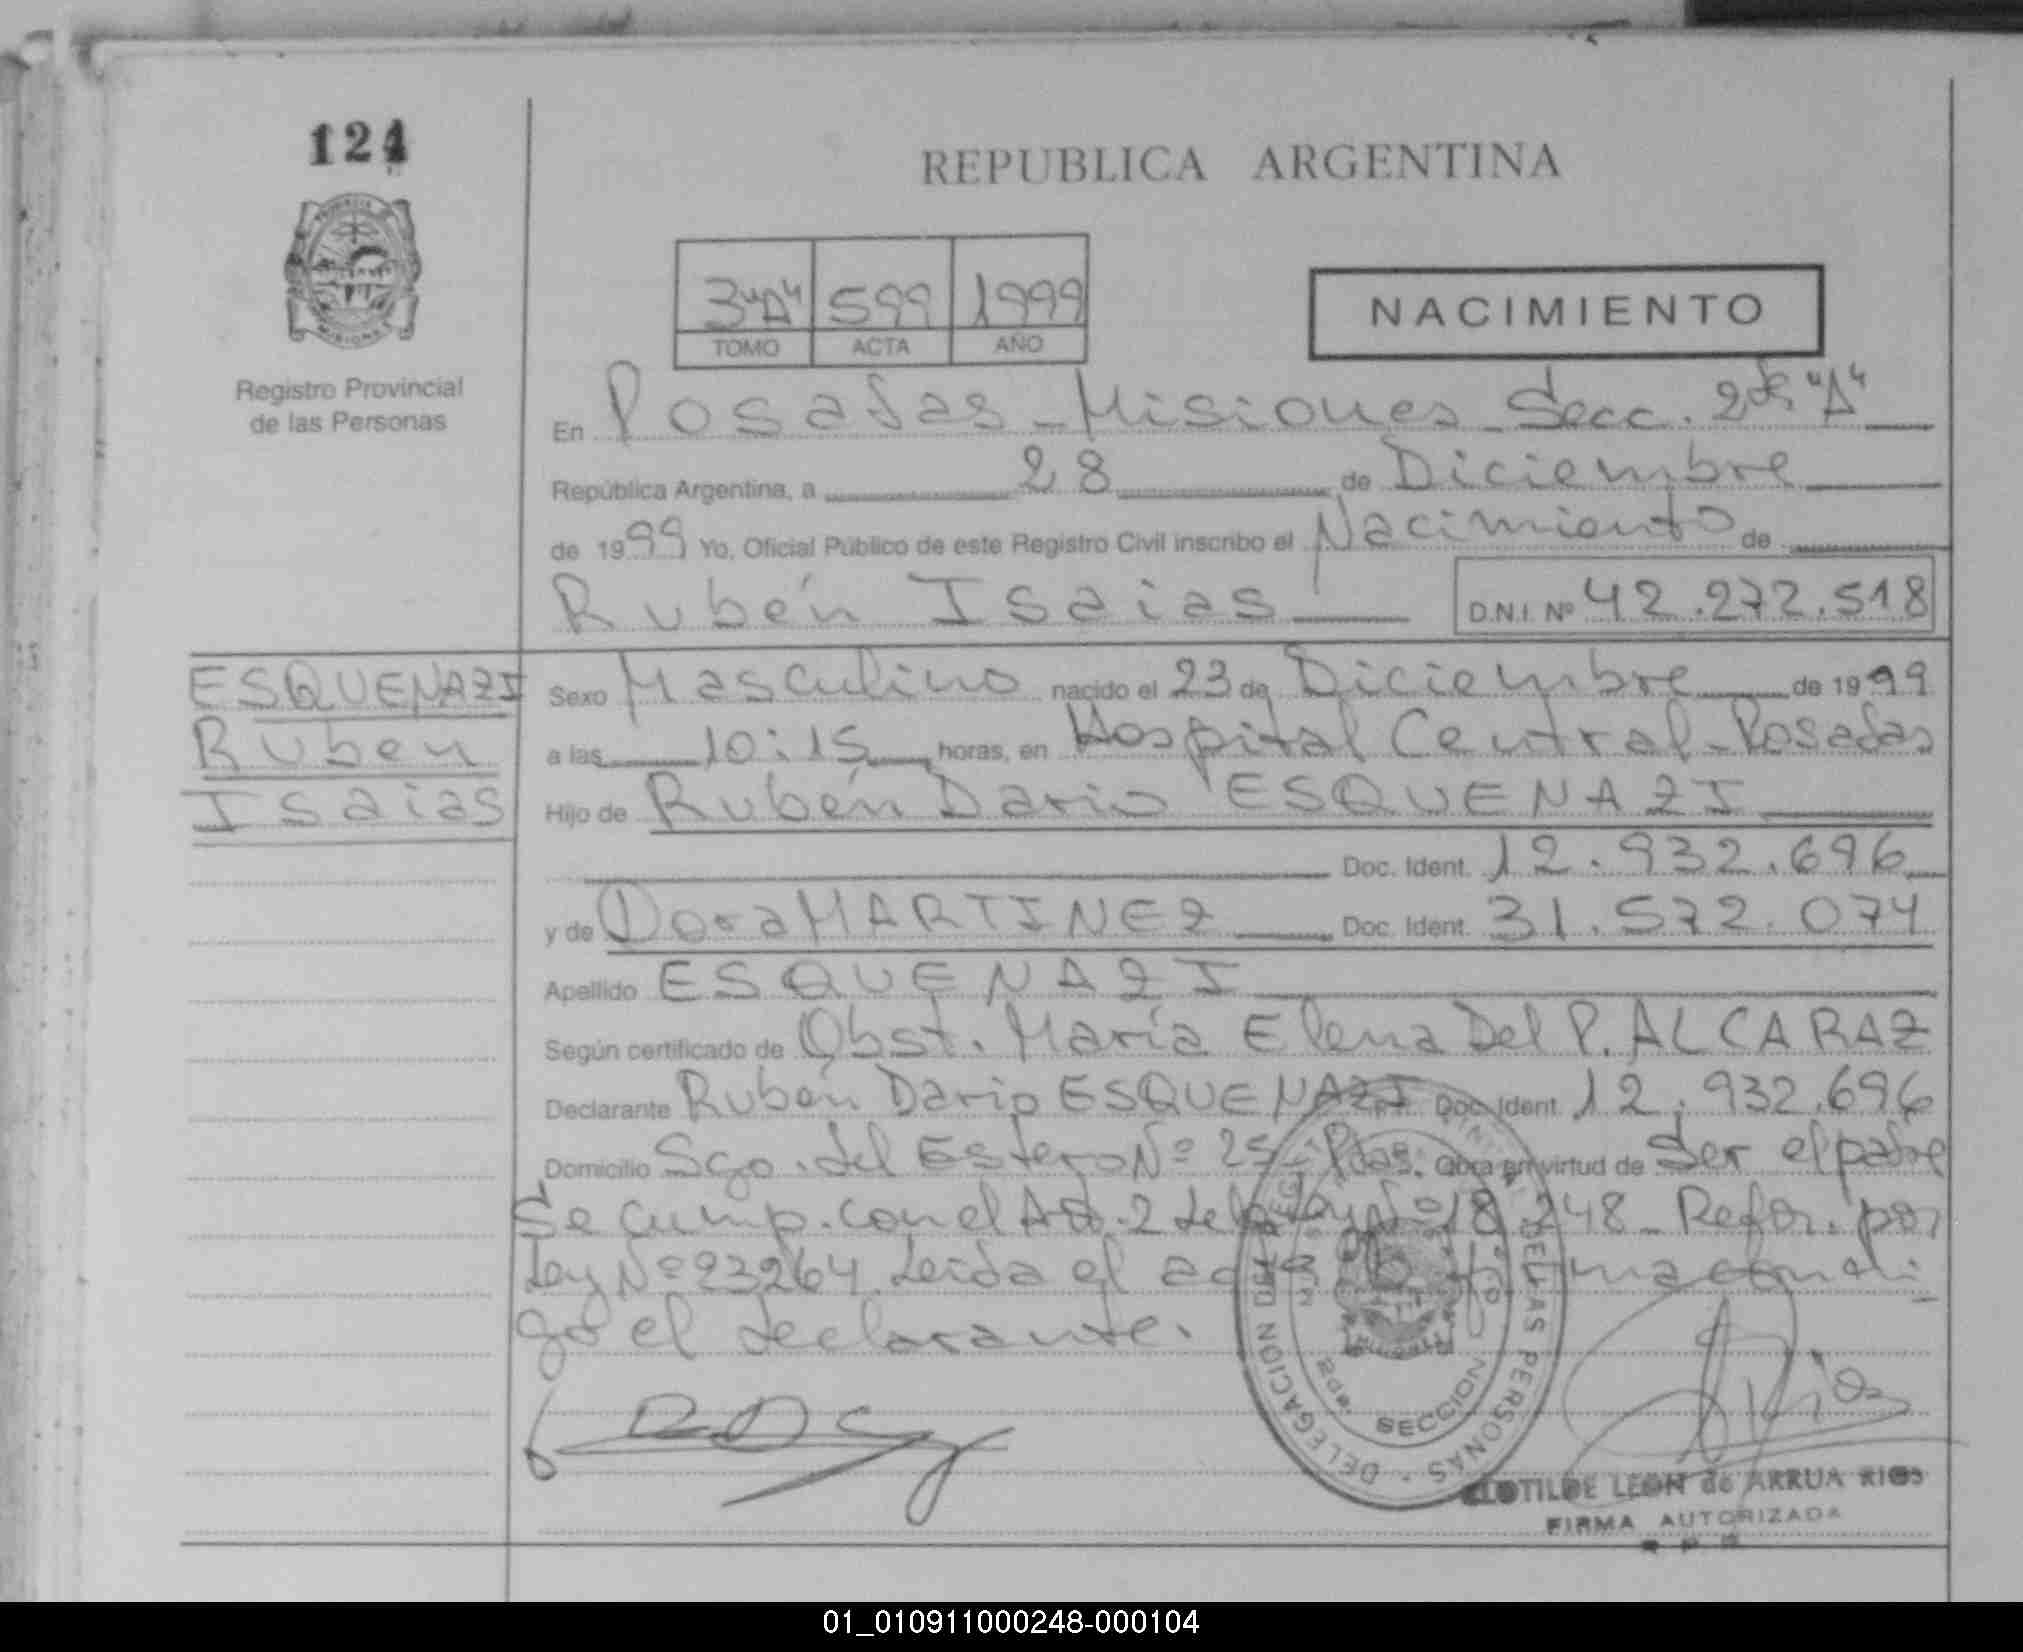 124
REPUBLICA ARGENTINA
3"A" 599 1999
TOMO ACTA AÑO
NACIMIENTO
Registro Provincial
de las Personas
En Posadas - Misiones - Secc. 2da "A"
República Argentina, a 28 de Diciembre
de 1999 Yo, Oficial Público de este Registro Civil inscribo el Nacimiento de
Rubén Isaias D.N.I. Nº 42.272.518
ESQUENAZI
Ruben
Isaias
Sexo Masculino nacido el 23 de Diciembre de 1999
a las 10:15 horas, en Hospital Central - Posadas
Hijo de Rubén Dario ESQUENAZI
Doc. Ident. 12.932.696
y de Dora MARTINEZ Doc. Ident. 31.572.074
Apellido ESQUENAZI
Según certificado de Obst. María Elena Del P. ALCARAZ
Declarante Rubén Dario ESQUENAZI Doc. Ident. 12.932.696
Domicilio Sgo. del Estero Nº 25 - Pdas. Obra en virtud de ser el padre
Se cump. con el Art. 2 de la Ley Nº 18.248 - Refor. por
Ley Nº 23264. Leida el acta la firma conmi-
go el declarante.
DELEGACION DEL REGISTRO DE LAS PERSONAS
2da. SECCION
CLOTILDE LEON de ARRUA RIOS
FIRMA AUTORIZADA
R P P
01_010911000248-000104